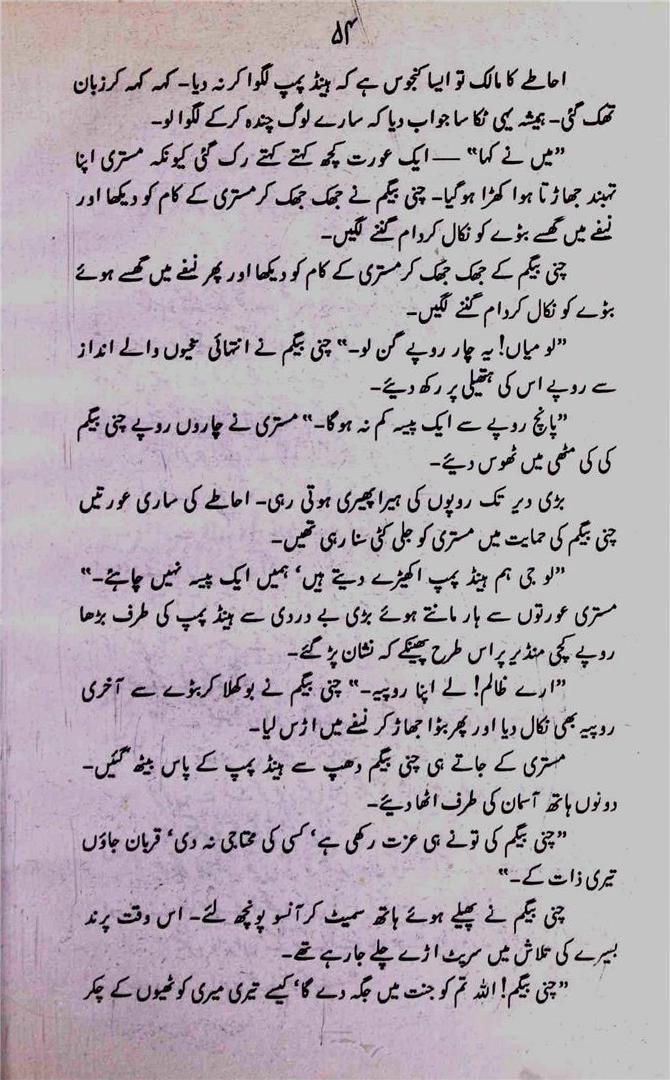 ۵۴
احاطے کا مالک تو ایسا کنجوس ہے کہ ہینڈ پمپ لگوا کر نہ دیا۔ کہہ کہہ کر زبان
تھک گئی۔ ہمیشہ یہی ٹکا سا جواب دیا کہ سارے لوگ چندہ کر کے لگوا لو۔
”میں نے کہا“ — ایک عورت کچھ کہتے کہتے رک گئی کیونکہ مستری اپنا
تہبند جھاڑتا ہوا کھڑا ہو گیا۔ چنی بیگم نے جھک جھک کر مستری کے کام کو دیکھا اور
نیفے میں گھسے بٹوے کو نکال کر دام گننے لگیں۔
چنی بیگم کے جھک جھک کر مستری کے کام کو دیکھا اور پھر نیفے میں گھسے ہوئے
بٹوے کو نکال کر دام گننے لگیں۔
”لو میاں! یہ چار روپے گن لو۔“ چنی بیگم نے انتہائی سخیوں والے انداز
سے روپے اس کی ہتھیلی پر رکھ دیئے۔
”پانچ روپے سے ایک پیسہ کم نہ ہوگا۔“ مستری نے چاروں روپے چنی بیگم
کی کی مٹھی میں ٹھوس دیئے۔
بڑی دیر تک روپوں کی ہیرا پھیری ہوتی رہی۔ احاطے کی ساری عورتیں
چنی بیگم کی حمایت میں مستری کو جلی کٹی سنا رہی تھیں۔
”لو جی ہم ہینڈ پمپ اکھیڑے دیتے ہیں‘ ہمیں ایک پیسہ نہیں چاہئے۔“
مستری عورتوں سے ہار مانتے ہوئے بڑی بے دردی سے ہینڈ پمپ کی طرف بڑھا
روپے کچی منڈیر پر اس طرح پھینکے کہ نشان پڑ گئے۔
”ارے ظالم! لے اپنا روپیہ۔“ چنی بیگم نے بوکھلا کر بٹوے سے آخری
روپیہ بھی نکال دیا اور پھر بٹوا جھاڑ کر نیفے میں اڑس لیا۔
مستری کے جاتے ہی چنی بیگم دھپ سے ہینڈ پمپ کے پاس بیٹھ گئیں۔
دونوں ہاتھ آسمان کی طرف اٹھا دیئے۔
”چنی بیگم کی تو نے ہی عزت رکھی ہے‘ کسی کی محتاجی نہ دی‘ قربان جاؤں
تیری ذات کے۔“
چنی بیگم نے پھیلے ہوئے ہاتھ سمیٹ کر آنسو پونچھ لئے۔ اس وقت پرند
بسیرے کی تلاش میں سرپٹ اڑے چلے جا رہے تھے۔
”چنی بیگم! اللہ تم کو جنت میں جگہ دے گا‘ کیسے تیری میری کوٹھیوں کے چکر